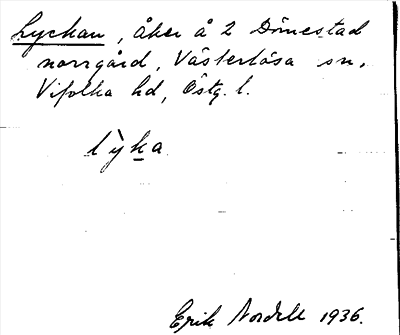 Lyckan, åker å 2 Dömestad
norrgård, Västerlösa sn,
Vifolka hd, Östg. l.
lỳka
Erik Nordell 1936.